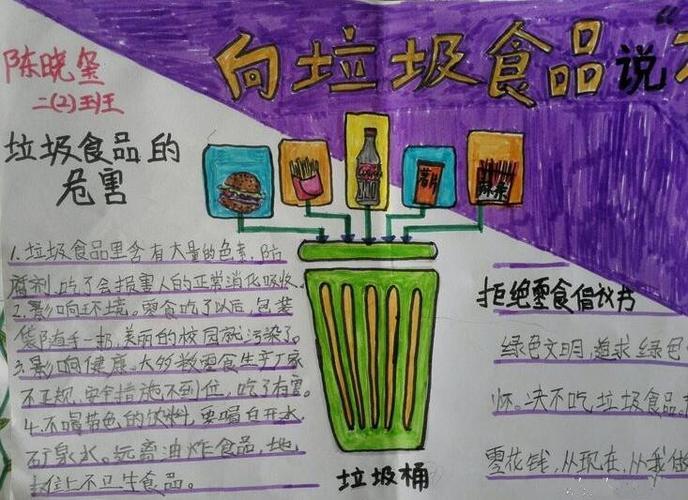 向垃圾食品说“
陈晓
二(2)班
垃圾食品的
危害
薯片
1.垃圾食品里含有大量的色素,防
腐剂,吃了会损害人的正常消化吸收.
2.影响环境。零食吃了以后,包装
袋随手一扔,美丽的校园就污染了。
3.影响健康。大多数零食生产厂家
不正规,安全措施不到位,吃了有害。
4.不喝带色的饮料,要喝白开水,
矿泉水。远离油炸食品,地
摊上不卫生食品。
垃圾桶
拒绝零食倡议书
绿色文明,追求绿色
怀。决不吃垃圾食品,
零花钱,从现在,从我做